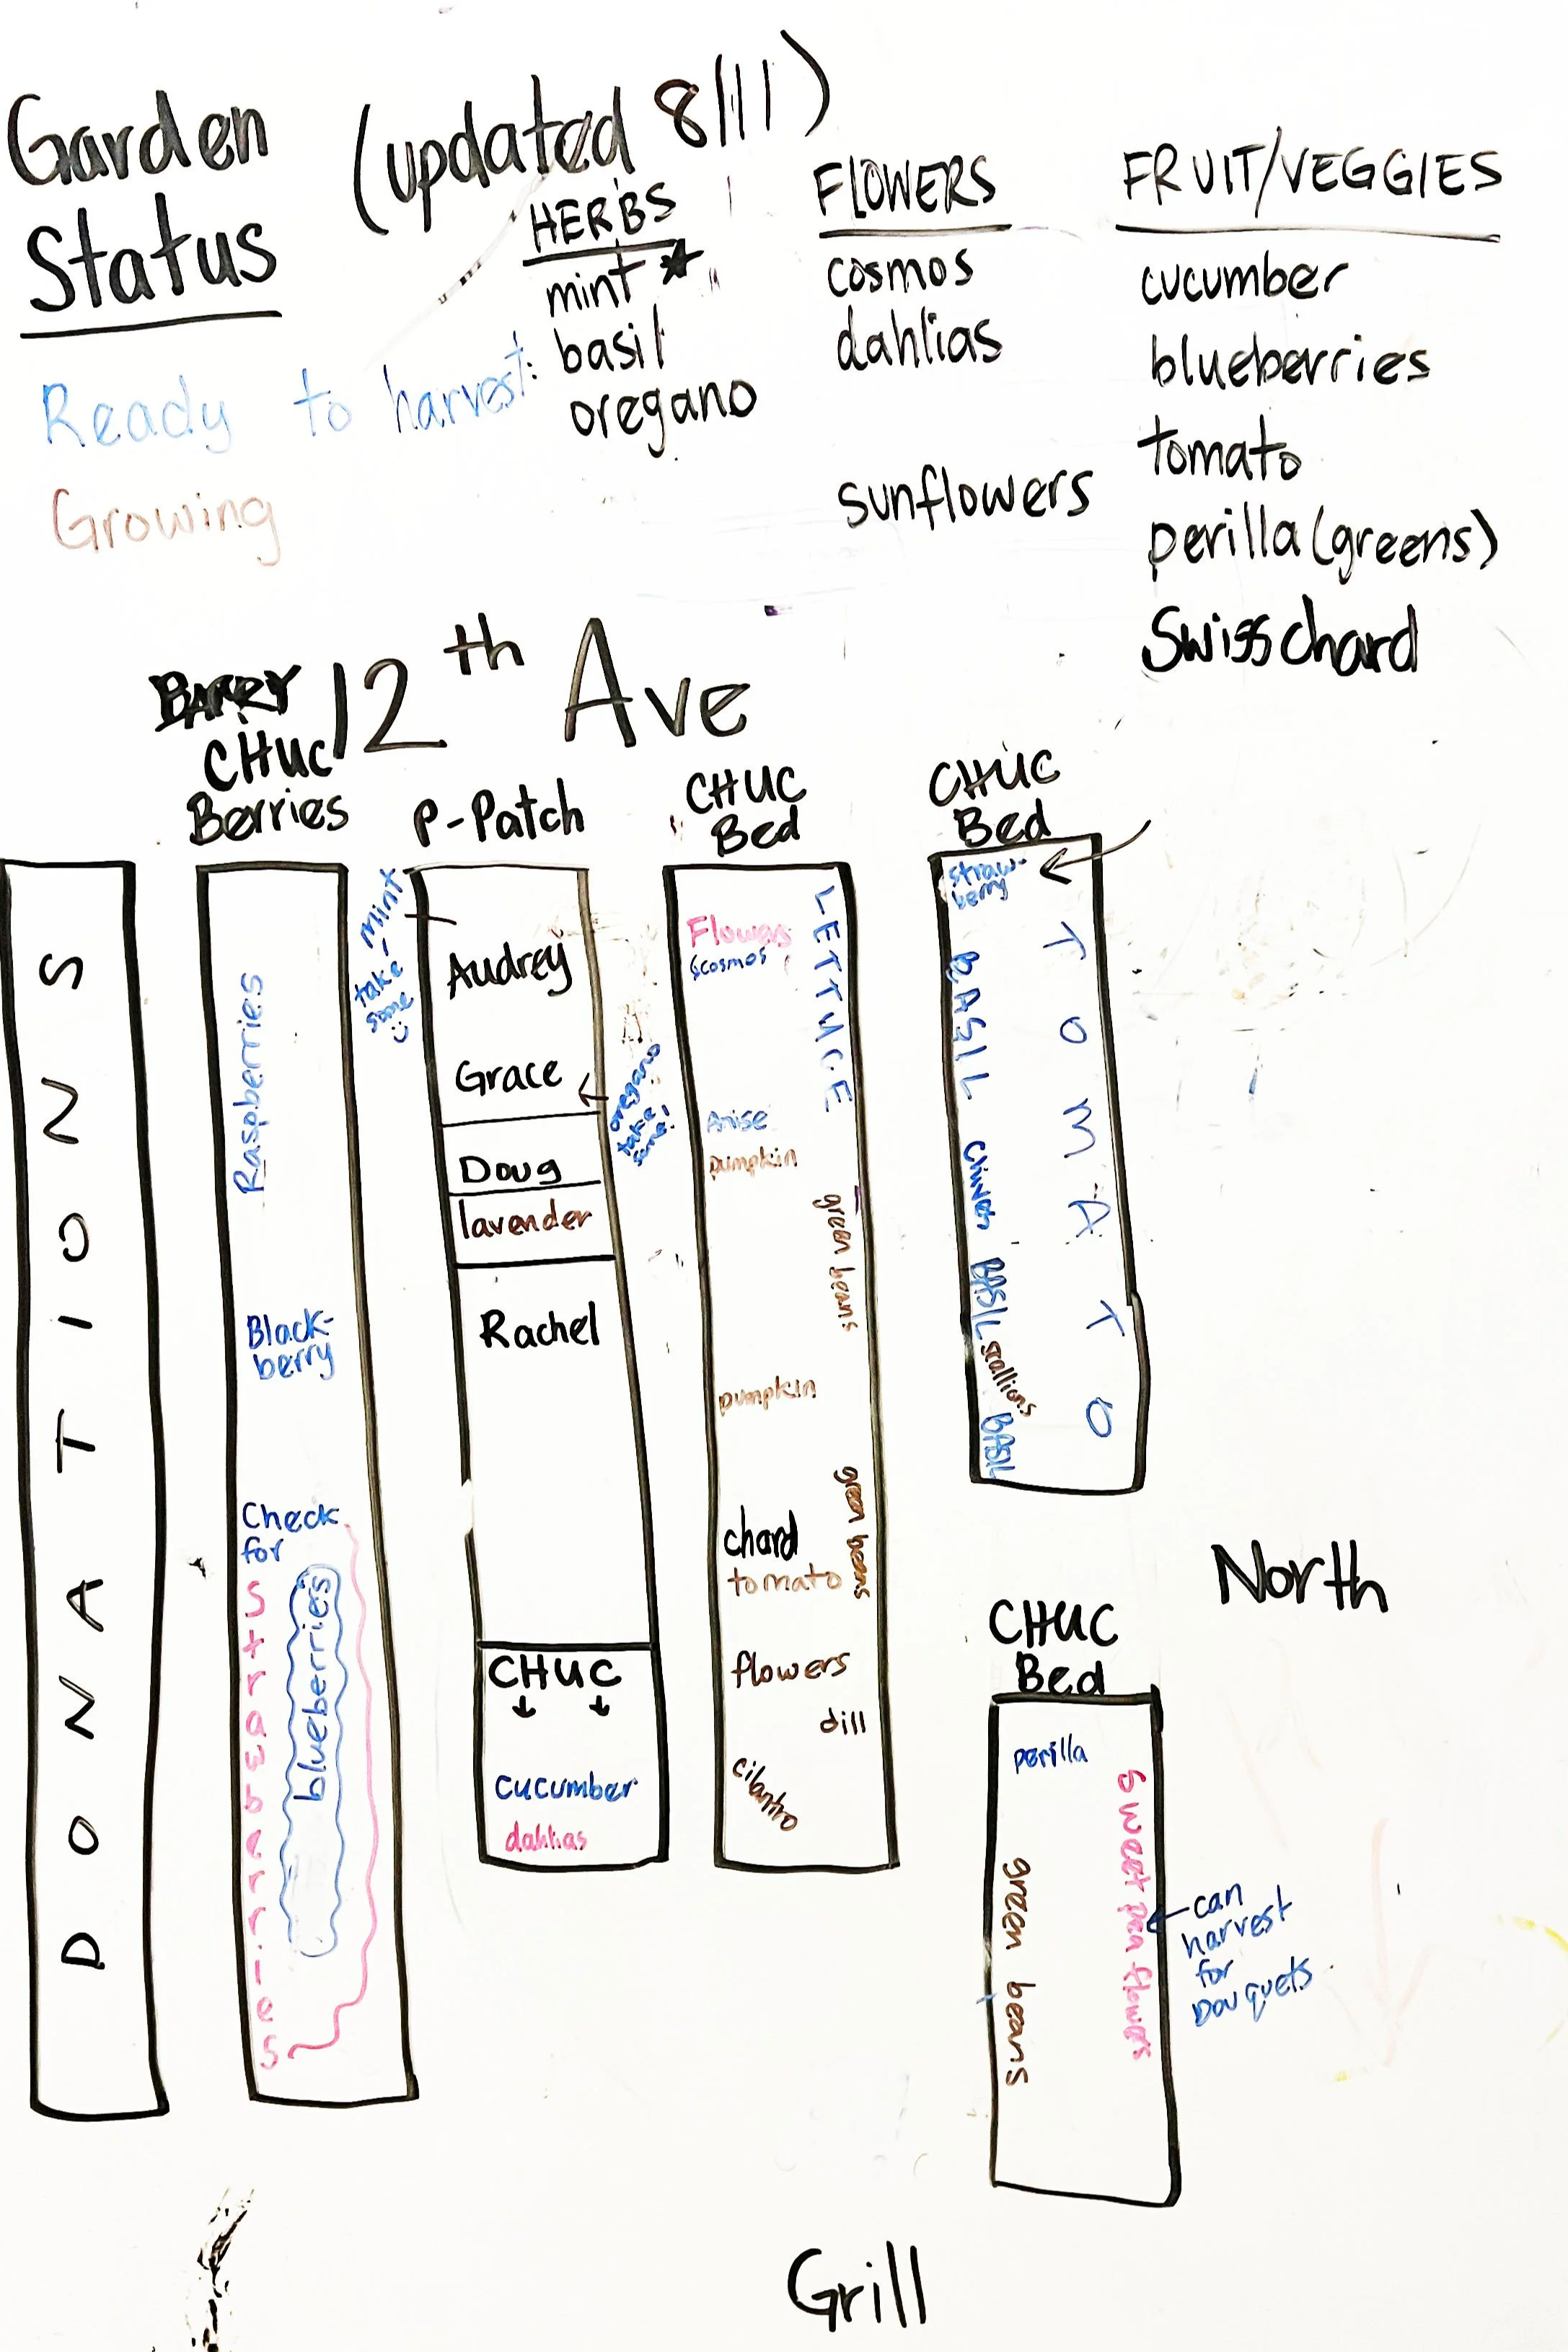 Garden
Status
(updated 8/11)
Ready to harvest:
Growing
HERBS
mint *
basil
oregano
FLOWERS
cosmos
dahlias
sunflowers
FRUIT/VEGGIES
cucumber
blueberries
tomato
perilla (greens)
Swiss chard
12th Ave
DONATIONS
CHUC
Berries
Raspberries
Black-
berry
Check
for
blueberries
strawberries
P-Patch
mint
take
some
Audrey
Grace
oregano
take
some!
Doug
lavender
Rachel
CHUC
↓ ↓
cucumber
dahlias
CHUC
Bed
Flowers
cosmos
LETTUCE
Anise
pumpkin
green beans
pumpkin
green beans
chard
tomato
flowers
dill
cilantro
CHUC
Bed
straw-
berry
TOMATO
BASIL
chives
BASIL
scallions
BASIL
North
CHUC
Bed
perilla
sweet pea flowers
can
harvest
for
bouquets
green beans
Grill